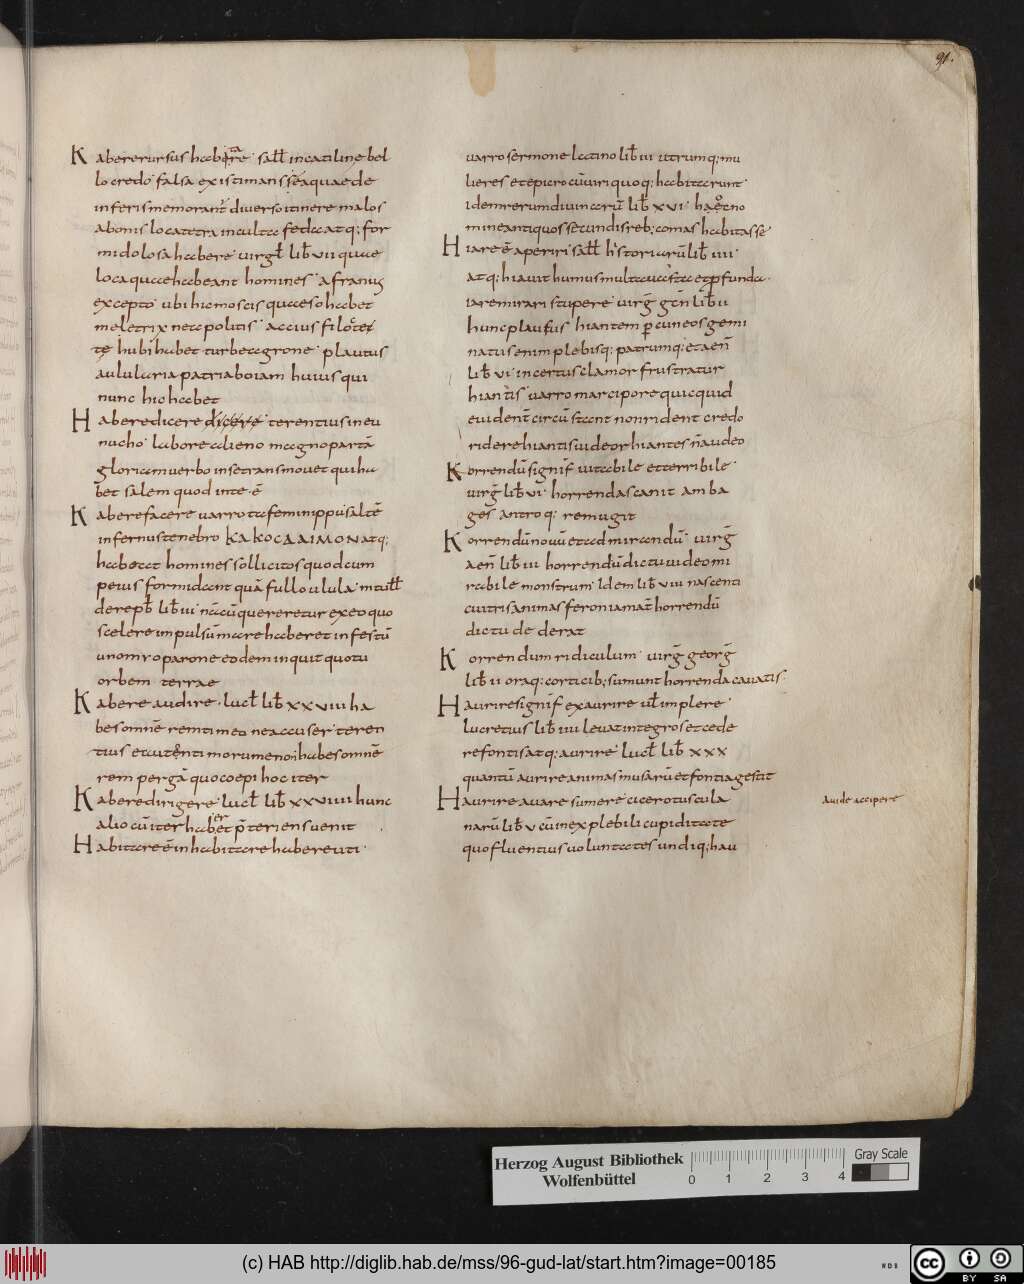 91.
K aberersus habitare sall in catiline bel
lo credo falsa existimans ea quae de
inferis memorant diverso itinere malos
a bonis loca tetra inculta feda atq; for
midolosa habere virgl lib vii quae
loca quae habeant homines afranius
excepto ubi hic moecis quaeso habet
meletrix neapolitis accius filocte
te hubi habet turbe agrone plautus
aulularia patria boiam huius qui
nunc hic habet
H abere dicere dicere terentius in eu
nucho labore alieno magno partā
gloriam verbo in se transmovet qui ha
bet salem quod in te ē
K abere facere varro tafemenippusaltē
infernus tenebro KAKOCΔAIMON atq;
habeat homines sollicitos quod eum
peius formidant quā fullo ulula m tull
de rep lib iii nā cū quereretur ex eo quo
scelere impulsū mare haberet infestū
uno myoparone eodem inquit quotu
orbem terrae
K abere audire lucl lib xxviii ha
bes omnē rem timeo ne accuser teren
tius et autenti morumenoi habes omnē
rem pergā quo coepi hoc iter
K abere dirigere lucl lib xxviiii hunc
alio cū iter haberet p̄teriens venit
H abitare ē in habitare habere uti
varro sermone latino lib iii utrumq; mu
lieres et epicrocū viri quoq; habitarunt
idem rerum divinarū lib xvi hac no
mine antiquos secundis reb; comas habitasse
H iare ē aperiri sall historiarū lib iiii
atq; hiavit humus multa vasta et profunda
iare mirari stupere virg gen lib ii
hunc plausus hiantem per cuneos gemi
natus enim plebisq; patrumq; et aen̄
lib vi in certus clamor frustratur
hiantis varro marcipore quicquid
evident circū stant non rident credo
ridere hiantis video rhiantes n̄ audeo
K orrendū signif mutabile et terribile
virg lib vi horrendas canit amba
ges antroq; remugit
K orrendū novū et admirandū virg
aen̄ lib iii horrendū dictu video mi
rabile monstrum idem lib viii nascenti
cui tris animas feronia mat̄ horrendū
dictu dederat
K orrendum ridiculum virg georg
lib ii oraq; corticib; sumunt horrenda cavatis
H aurire signif exaurire vel implere
lucretius lib iiii levat integros et cede
re fontis atq; aurire lucl lib xxx
quantū aurire animas musarū et fontia gestit
H aurire avare sumere cicero tuscula
narū lib v cū inexplebili cupiditate
quo fluentius voluntates undiq; hau
Avide accipere
Herzog August Bibliothek
Wolfenbüttel
0 1 2 3 4
Gray Scale
(c) HAB http://diglib.hab.de/mss/96-gud-lat/start.htm?image=00185
WDB
cc BY SA